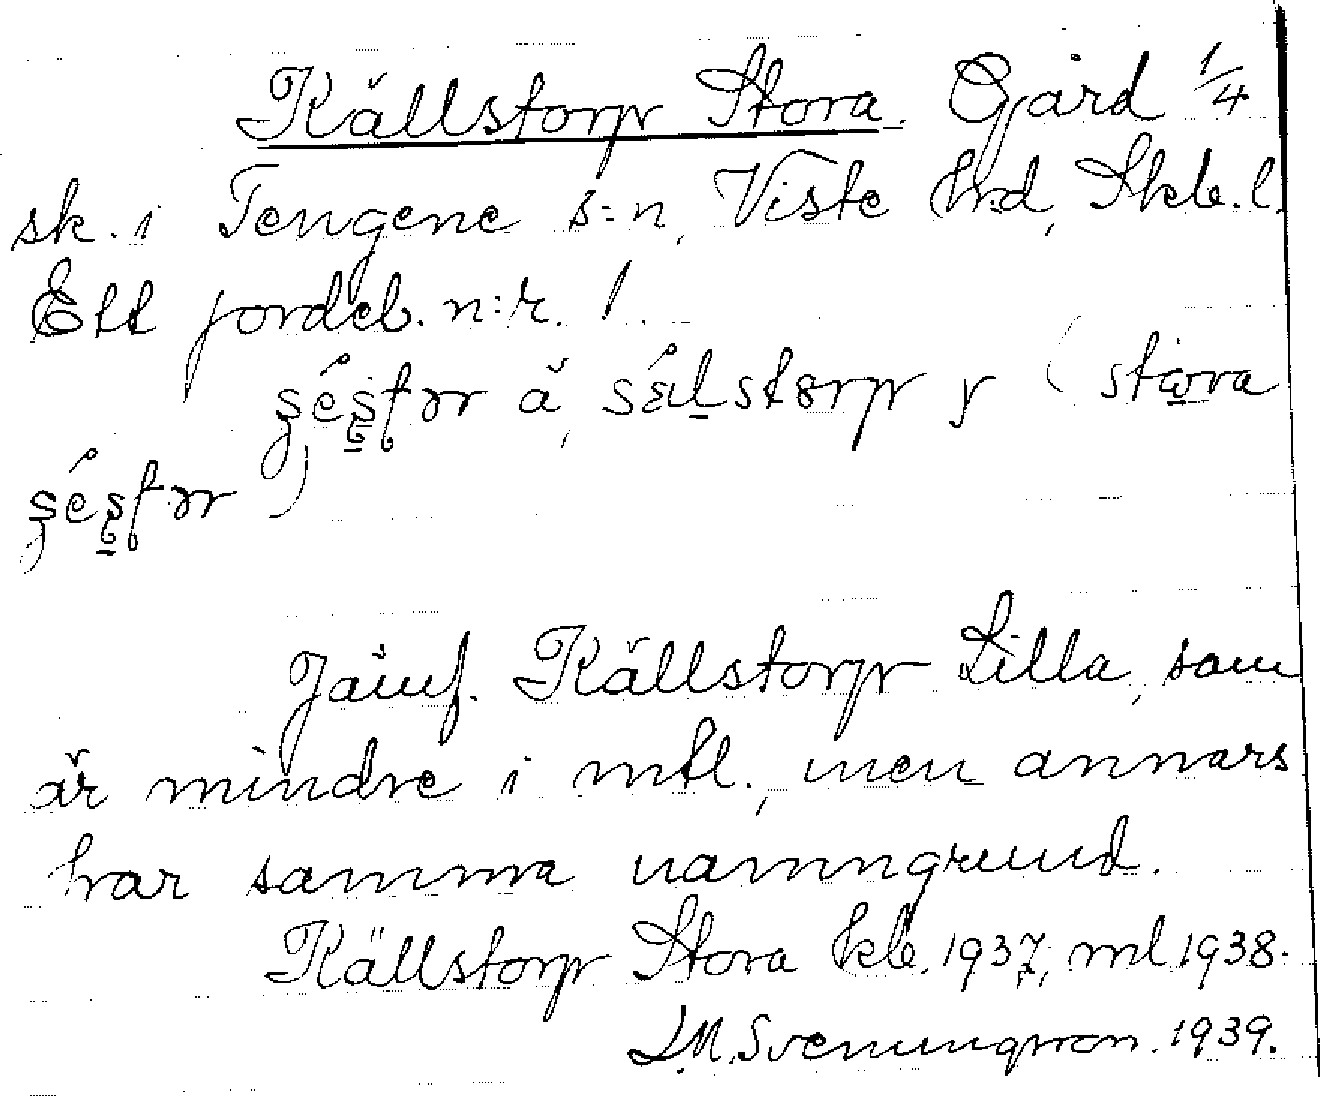 Källstorp Stora. Gård 1/4
sk. i Tengene s:n, Viste hrd, Skb. l.
Ett jordeb. n:r. 1.
ä, y (stora
)
Jämf. Källstorp Lilla, som
är mindre i mtl., men annars
har samma namngrund.
Källstorp Stora kb. 1937, ml 1938.
L.M. Svenungsson. 1939.